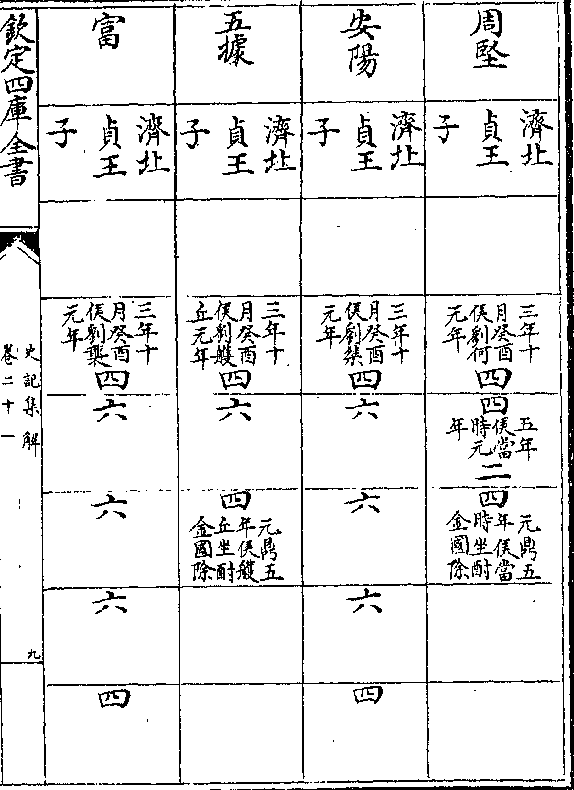 周堅
濟北
貞王
子
三年十
月癸酉
侯劉何
元年
四
四
五年
侯當
時元
年
二
四
元鼎五
年侯當
時坐酎
金國除
安陽
濟北
貞王
子
三年十
月癸酉
侯劉桀
元年
四
六
六
六
四
五據
濟北
貞王
子
三年十
月癸酉
侯劉艧
丘元年
四
六
四
元鼎五
年侯艧
丘坐酎
金國除
富
濟北
貞王
子
三年十
月癸酉
侯劉襲
元年
四
六
六
六
四
欽定四庫全書
史記集解
卷二十一
九